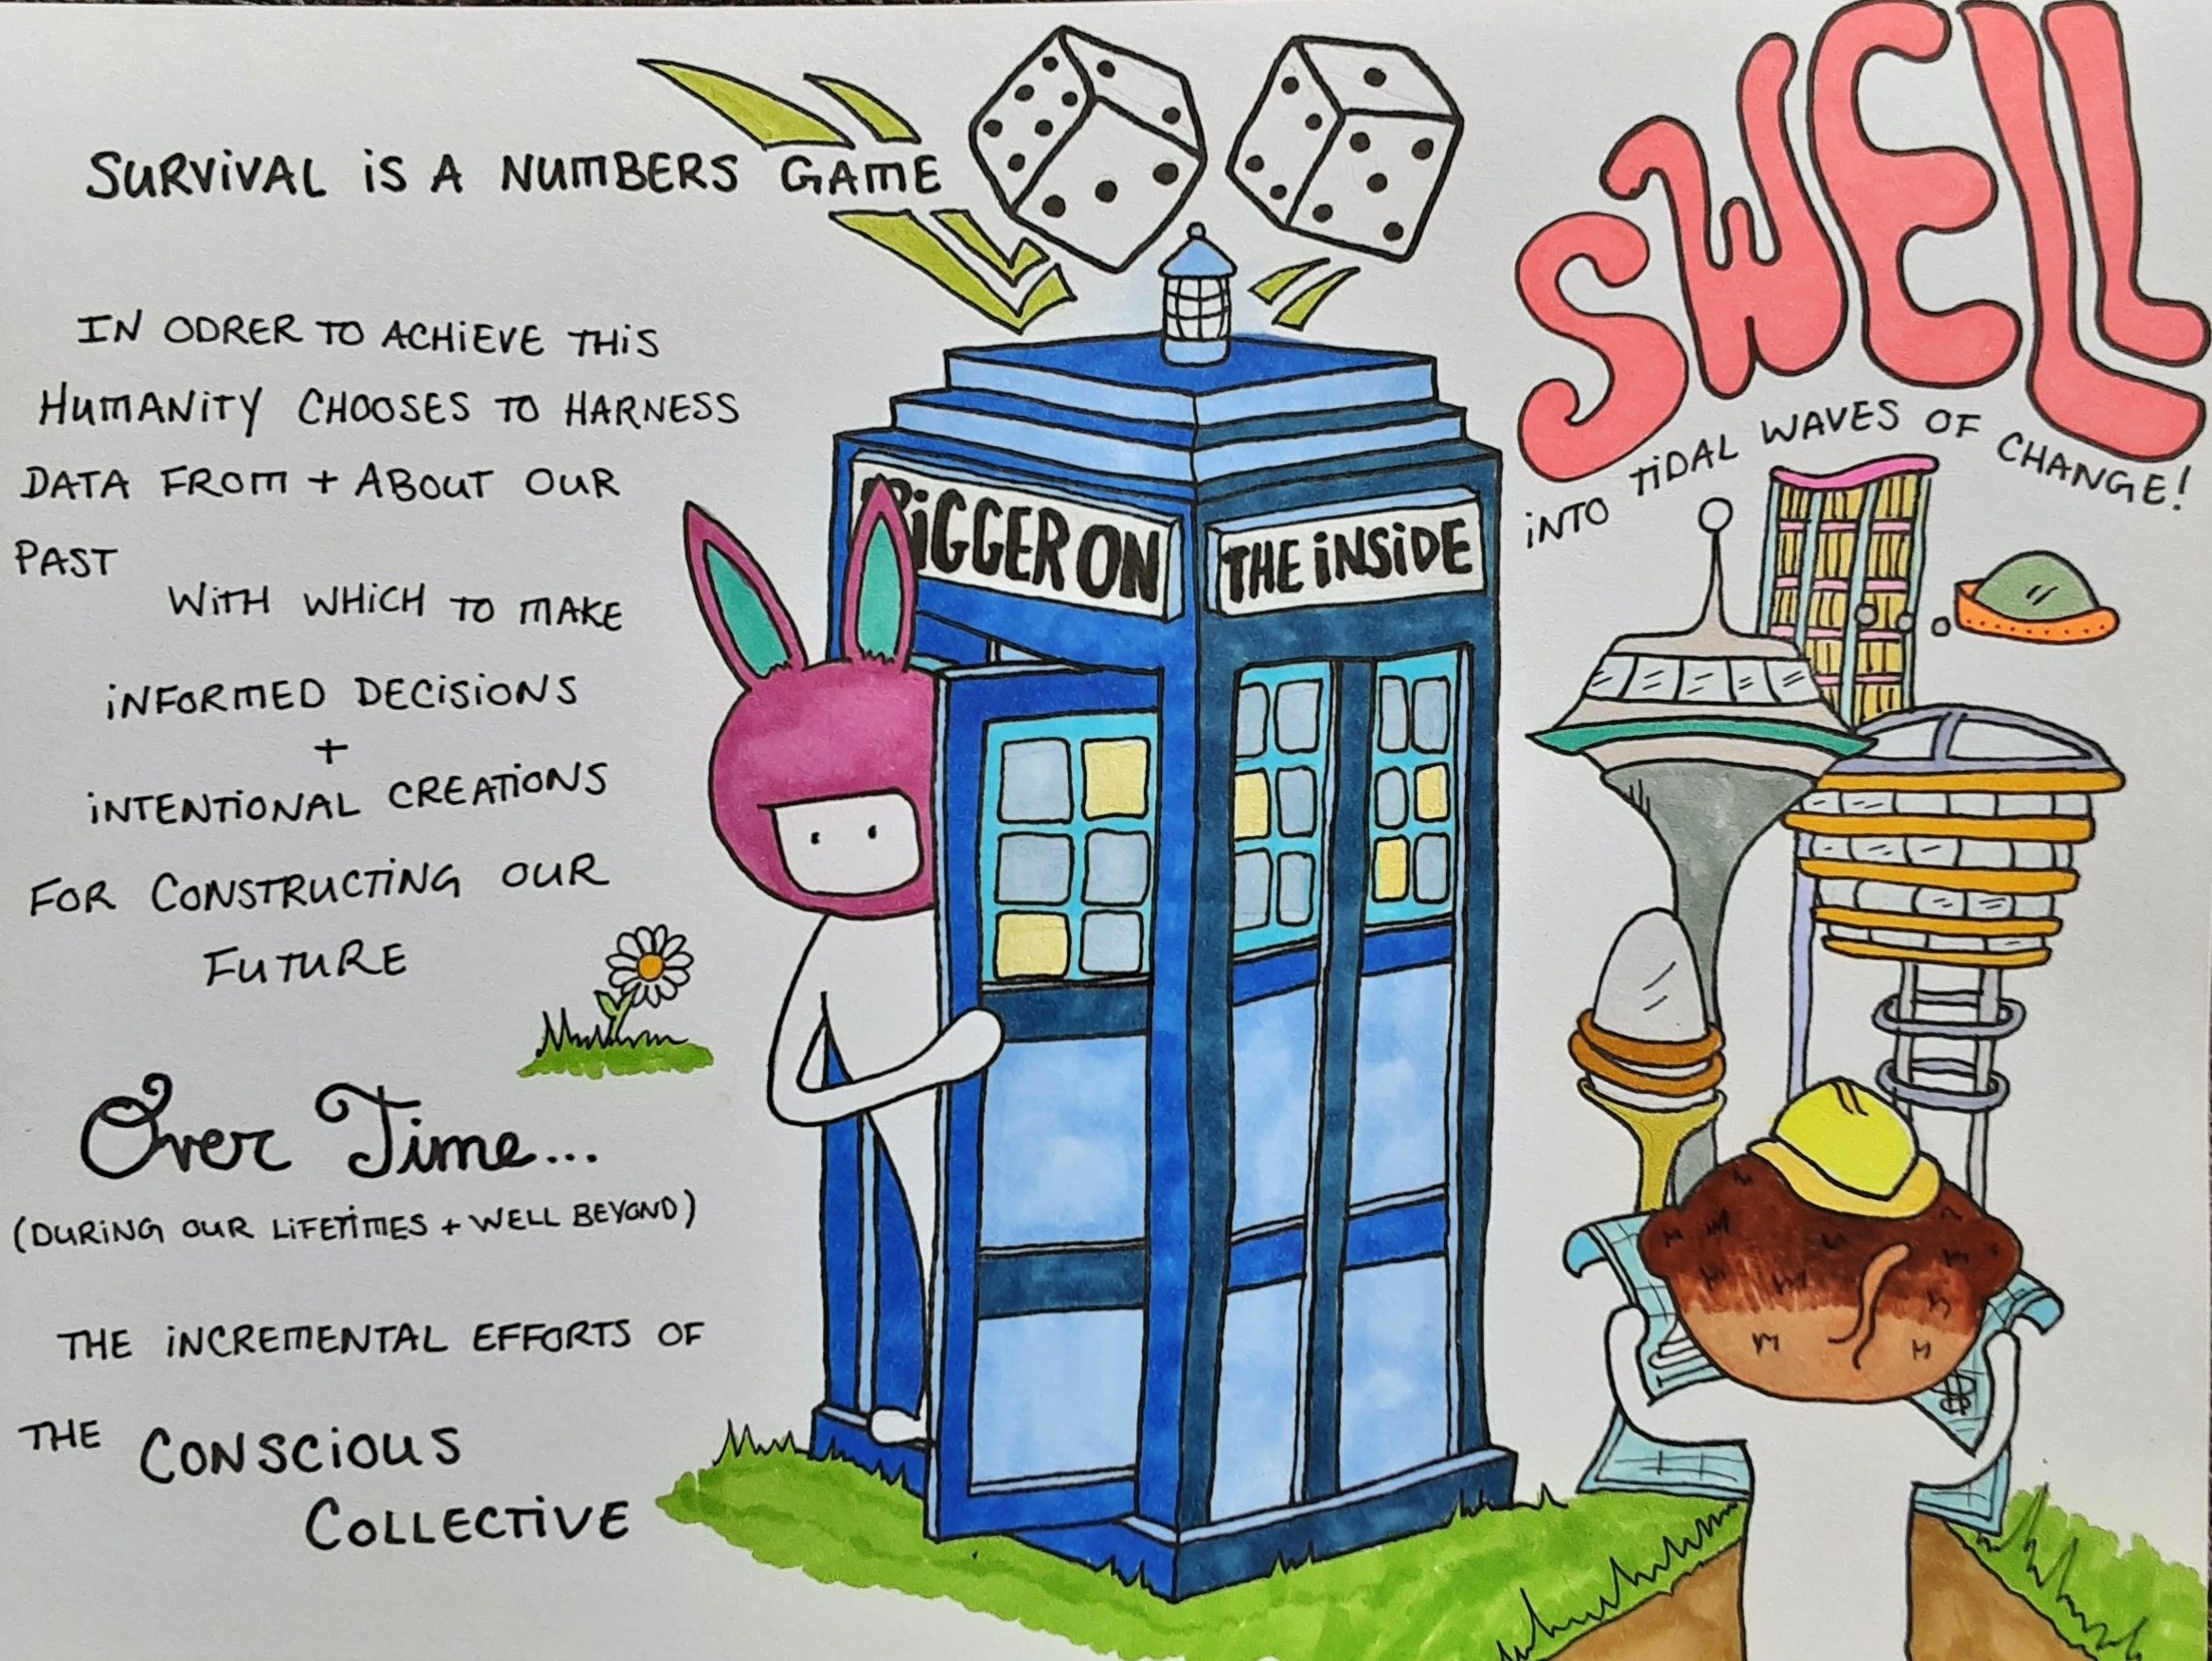 SURVIVAL IS A NUMBERS GAME
IN ODRER TO ACHIEVE THIS
HUMANITY CHOOSES TO HARNESS
DATA FROM + ABOUT OUR
PAST
WITH WHICH TO MAKE
INFORMED DECISIONS
+
INTENTIONAL CREATIONS
FOR CONSTRUCTING OUR
FUTURE
Over Time...
(DURING OUR LIFETIMES + WELL BEYOND)
THE INCREMENTAL EFFORTS OF
THE CONSCIOUS
COLLECTIVE
BIGGER ON
THE INSIDE
SWELL
INTO TIDAL WAVES OF CHANGE!
$